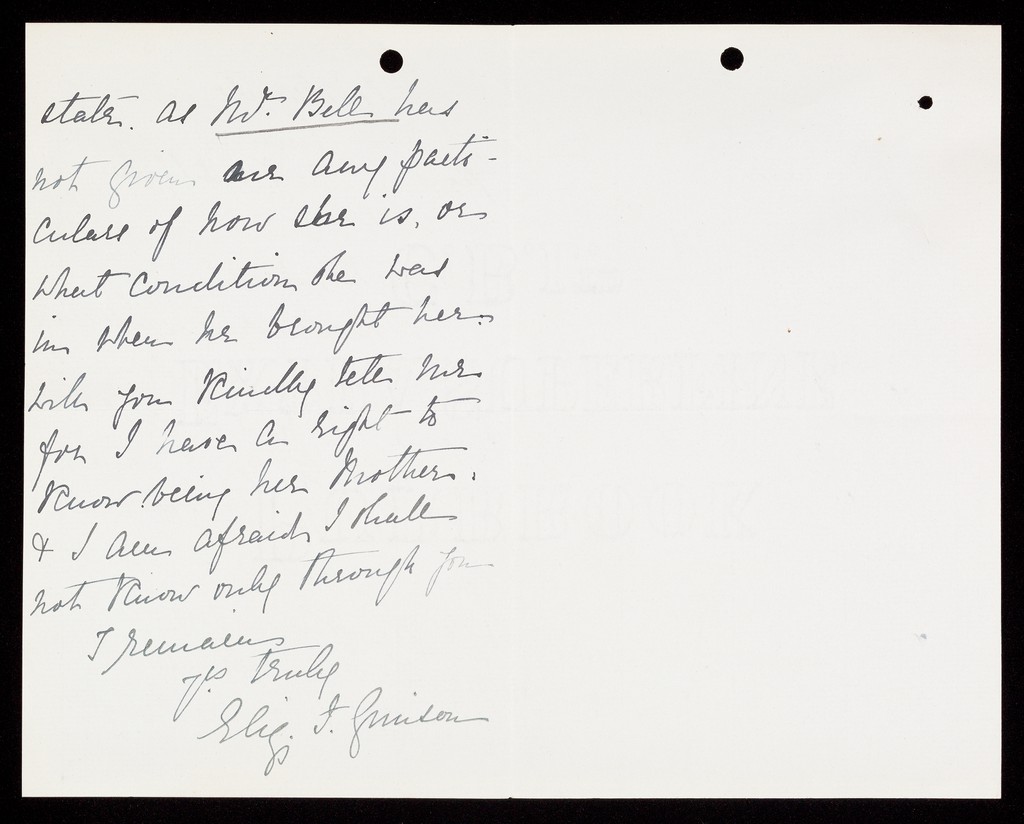 state. as Mr. Bell has
not given me any parti-
culars of how she is, or
what condition she was
in when he brought her.
will you kindly tell me
for I have a right to
know being her Mother.
& I am afraid I shall
not know only through you
I remain
yrs truly
Eliz. F. Gimson